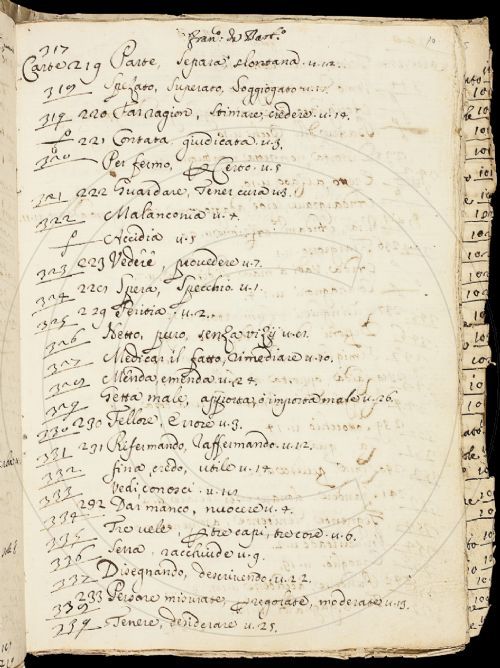 10
317
Carte 219 Parte, Separa, slontana. u. 12.
318 Spezato, Superato, Soggiogato u.
319 220 Far ragion, Stimare, credere. u. 14.
221 Contata, giudicata u. 3.
320 Per fermo, Certo. u. 5
321 222 Guardare, Tener cura u 3.
322 Malanconia u. 4.
Accidia u. 5
323 223 Vedere, provedere u. 7.
324 Spera, Specchio. u. 1.
325 229 u. 2.
326 Netto, puro, senza vizij u.
327 Medicar il fatto, rimediare u. 10.
328 Menda, emenda u. 24.
329 Getta male, apporta, ò importa male u. 26.
330 230 Fellore, Errore u. 3.
331 231 Rifermando, Raffermando. u. 12.
332 credo, utile u. 14.
333 Vedi conosci. u.
334 232 Dar manco, nuocere u. 4.
335 Tre vele, tre capi, tre core. u. 6.
336 Serra, racchiude u. 9.
337 Disegnando, descrivendo u. 22.
233 Persone misurate, regolate, moderate u. 13.
339 Tenere, desiderare u. 25.